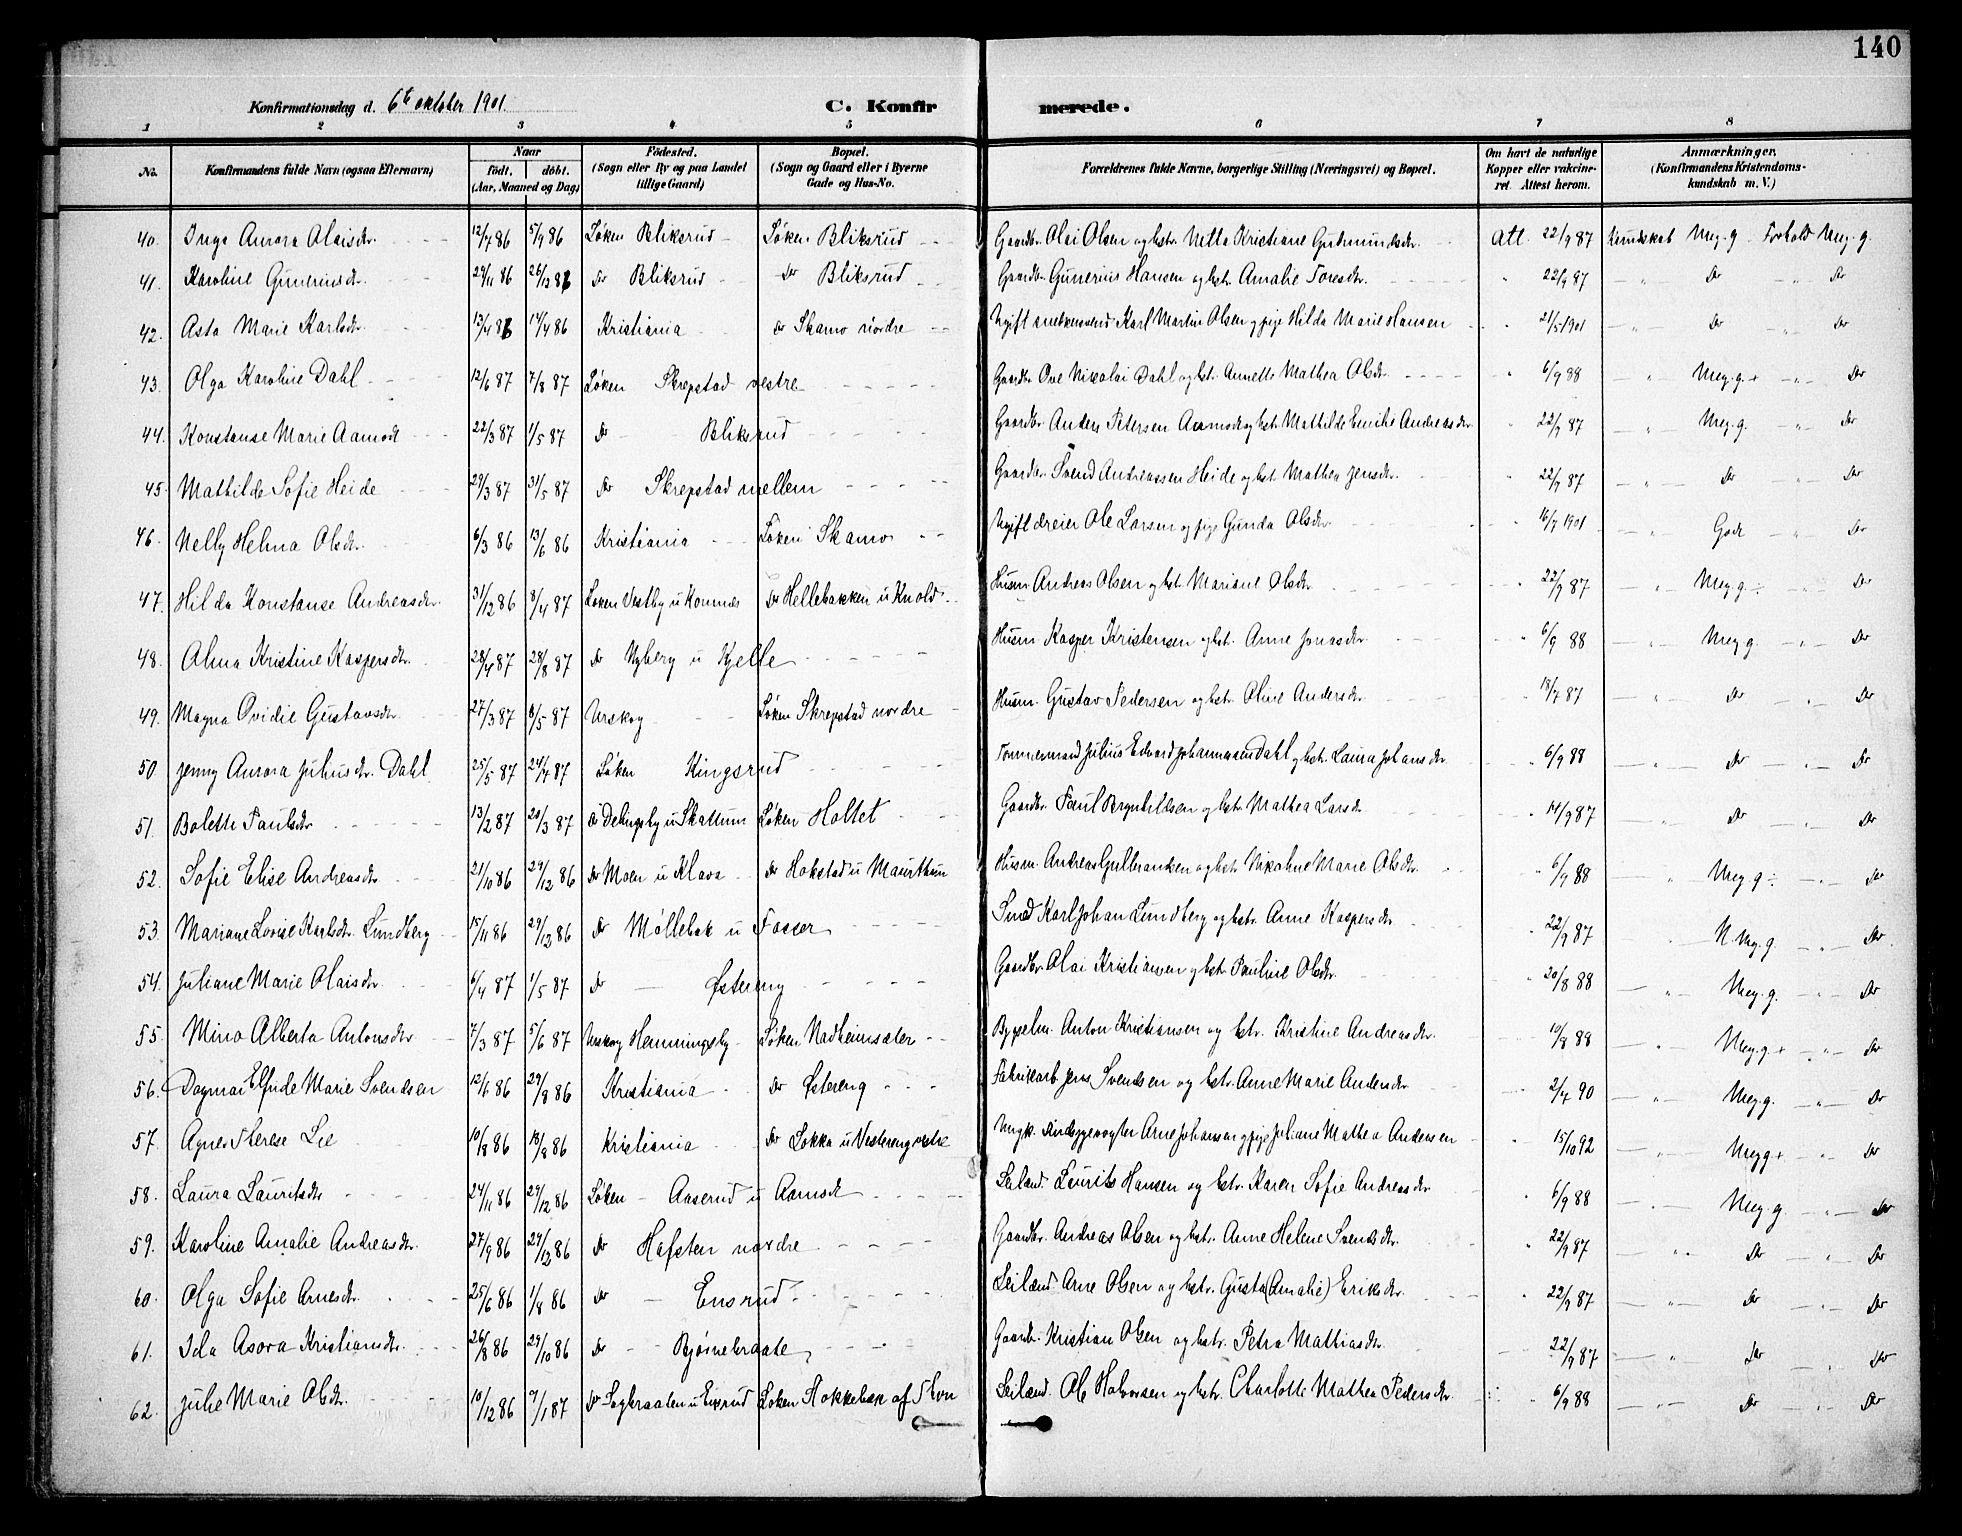 140
Konfirmationsdag d. 6te oktober 1901.
C. Konfirmerede.
1 2 3 4 5 6 7 8
No. Konfirmandens fulde Navn (ogsaa Efternavn) Naar født. døbt. (Aar, Maaned og Dag) Fødested. (Sogn eller By og paa Landet tillige Gaard) Bopæl. (Sogn og Gaard eller i Byerne Gade og Hus-No. Forældrenes fulde Navne, borgerlige Stilling (Næringsvei) og Bopæl. Om havt de naturlige Kopper eller vakcineret. Attest herom. Anmærkninger. (Konfirmandens Kristendomskundskab m. V.)
40. Inga Aurora Olaisdr. 12/7 86 5/9 86 Løken Bliksrud Løken Bliksrud Gaardbr. Olai Olsen og hstr. Netta Kristiane Gudmundsdr. Att. 22/9 87 Kundskab Meg. g. Forhold Meg. g.
41. Karoline Guneriusdr. 24/11 86 26/12 86 Do Bliksrud Do Bliksrud Gaardbr. Gunerius Hansen og hstr. Amalie Toresdr. " 22/9 87 " Do " Do
42. Asta Marie Karlsdr. 13/4 86 14/4 86 Kristiania Do Skamo nordre Ugift snekkersvend Karl Martin Olsen og pige Hilda Marie Hansen " 21/5 1901 " Do " Do
43. Olga Karoline Dahl 12/6 87 7/8 87 Løken Skrepstad vestre Gaardbr. Ove Nikolai Dahl og hstr. Annette Mathea Olsdr. " 6/9 88 " Meg. g. + " Do
44. Konstanse Marie Aamodt 22/3 87 1/5 87 Do Bliksrud Gaardbr. Anders Petersen Aamodt og hstr. Mathilde Emilie Andreasdr. " 22/9 87 " Meg. g. " Do
45. Mathilde Sofie Heide 29/3 87 31/5 87 Do Skrepstad mellem Gaardbr. Svend Andreassen Heide og hstr. Mathea Jensdr. " 22/9 87 " Do " Do
46. Nelly Helma Olsdr. 6/3 86 13/6 86 Kristiania Løken Skamo Ugift dreier Ole Larsen og pige Gunda Olsdr. " 16/7 1901 " Godt " Do
47. Hilda Konstanse Andreasdr. 31/12 86 8/4 87 Løken Vestby u Komnæs Do Hellebakken u Knold Husm. Andreas Olsen og hstr. Mariane Olsdr. " 22/9 87 " Meg. g. ÷ Do
48. Alma Kristine Kaspersdr. 28/4 87 28/8 87 Do Nyberg u Kjelle Husm Kasper Kristensen og hstr. Anne Jonasdr. " 6/9 88 " Meg g. " Do
49. Magna Ovidie Gustavsdr. 27/3 87 8/5 87 Urskog Løken Skrepstad nordre Husm. Gustav Pedersen og hstr. Oline Andersdr. 18/7 87 " Do " Do
50. Jenny Aurora Juliusdr. Dahl 25/5 87 24/7 87 Løken Kingsrud Tømmermand Julius Edvard Johannessen Dahl og hstr. Laura Johansdr. " 6/9 88 " Do " Do
51. Bolette Paulsdr. 13/2 87 20/3 87 Do Delingsby u Skattum Løken Holtet Gaardbr. Paul Brynhildsen og hstr. Mathea Larsdr. " 14/9 87 " Do " Do
52. Sofie Elise Andreasdr. 21/10 86 29/12 86 Do Moen u Klava Do Hokstad u Maurthun Husm. Andreas Gulbranksen og hstr. Nikoline Marie Olsdr. " 6/9 88 " Meg g ÷ " Do
53. Mariane Lovise Karlsdr. Lundberg 15/11 86 29/12 86 Do Møllebak u Fosser Smed Karl Johan Lundberg og hstr. Anne Kaspersdr. " 22/9 87 " N. Mg. g. " Do
54. Juliane Marie Olaisdr. 6/4 87 1/5 87 Do Østereng Gaardbr. Olai Kristiansen og hstr. Pauline Olsdr. 20/8 88 " Meg. g. " Do
55. Mina Alberta Antonsdr. 7/3 87 5/6 87 Urskog Henningsby Løken Nadheimsæter Bygselm. Anton Kristiansen og hstr. Kristine Andreasdr. 10/8 88 " Meg. g + " Do
56. Dagmar Elfride Marie Svendsen 12/6 86 29/8 86 Kristiania Do Østereng Fabrikarb. Jens Svendsen og hstr. Anne Marie Andersdr. 2/4 90 " Meg. g. " Do
57. Agnes Therese Lie 10/8 86 18/8 86 Kristiania Do Løkka u Vestereng vestre Ungk. Arne Johansen og pige Johane Mathea Andersen " 15/10 92 " Meg g + " Do
58. Laura Lauritsdr. 24/11 86 29/12 86 Løken Aaserud u Aamodt Leiland. Laurits Hansen og hstr. Karen Sofie Andreasdr. " 6/9 88 " Meg. g. " Do
59. Karoline Amalie Andreasdr. 27/9 86 29/12 86 Do Hafsten nordre Gaardbr. Andreas Olsen og hstr. Anne Helene Svendsdr. " 22/9 87 " Do " Do
60. Olga Sofie Arnesdr. 25/6 86 1/8 86 Do Ensrud Leilænd. Arne Olsen og hstr. Gusta (Amalie) Eriksdr. " 22/9 87 " Do " Do
61. Ida Asora Kristiansdr. 26/8 86 29/10 86 Do Bjørnebraate Gaardbr. Kristian Olsen og hstr. Petra Mathiasdr. 22/9 87 " Do " Do
62. Julie Marie Olsdr. 10/12 86 9/1 87 Do Sagbraaten u Ensrud Løken Hokkebæk af Steen Leilænd. Ole Halvorsen og hstr. Charlotte Mathea Pedersdr. " 6/9 88 " Do " Do